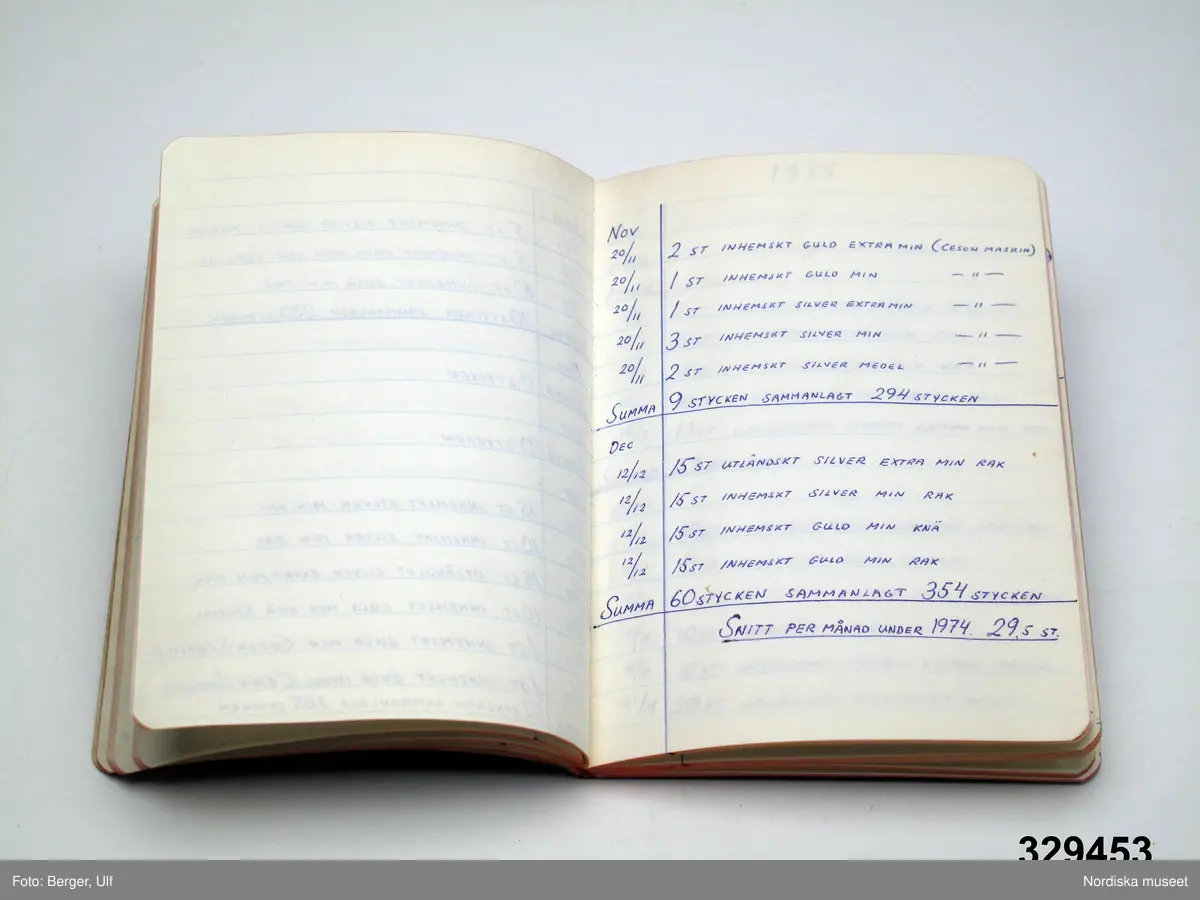 Nov
20/11 2 st inhemskt guld extra min (Ceson maskin)
20/11 1 st inhemskt guld min — " —
20/11 1 st inhemskt silver extra min — " —
20/11 3 st inhemskt silver min — " —
20/11 2 st inhemskt silver medel — " —
Summa 9 stycken sammanlagt 294 stycken
Dec
12/12 15 st utländskt silver extra min rak
12/12 15 st inhemskt silver min rak
12/12 15 st inhemskt guld min knä
12/12 15 st inhemskt guld min rak
Summa 60 stycken sammanlagt 354 stycken
Snitt per månad under 1974. 29,5 st.
329453
Foto: Berger, Ulf
Nordiska museet